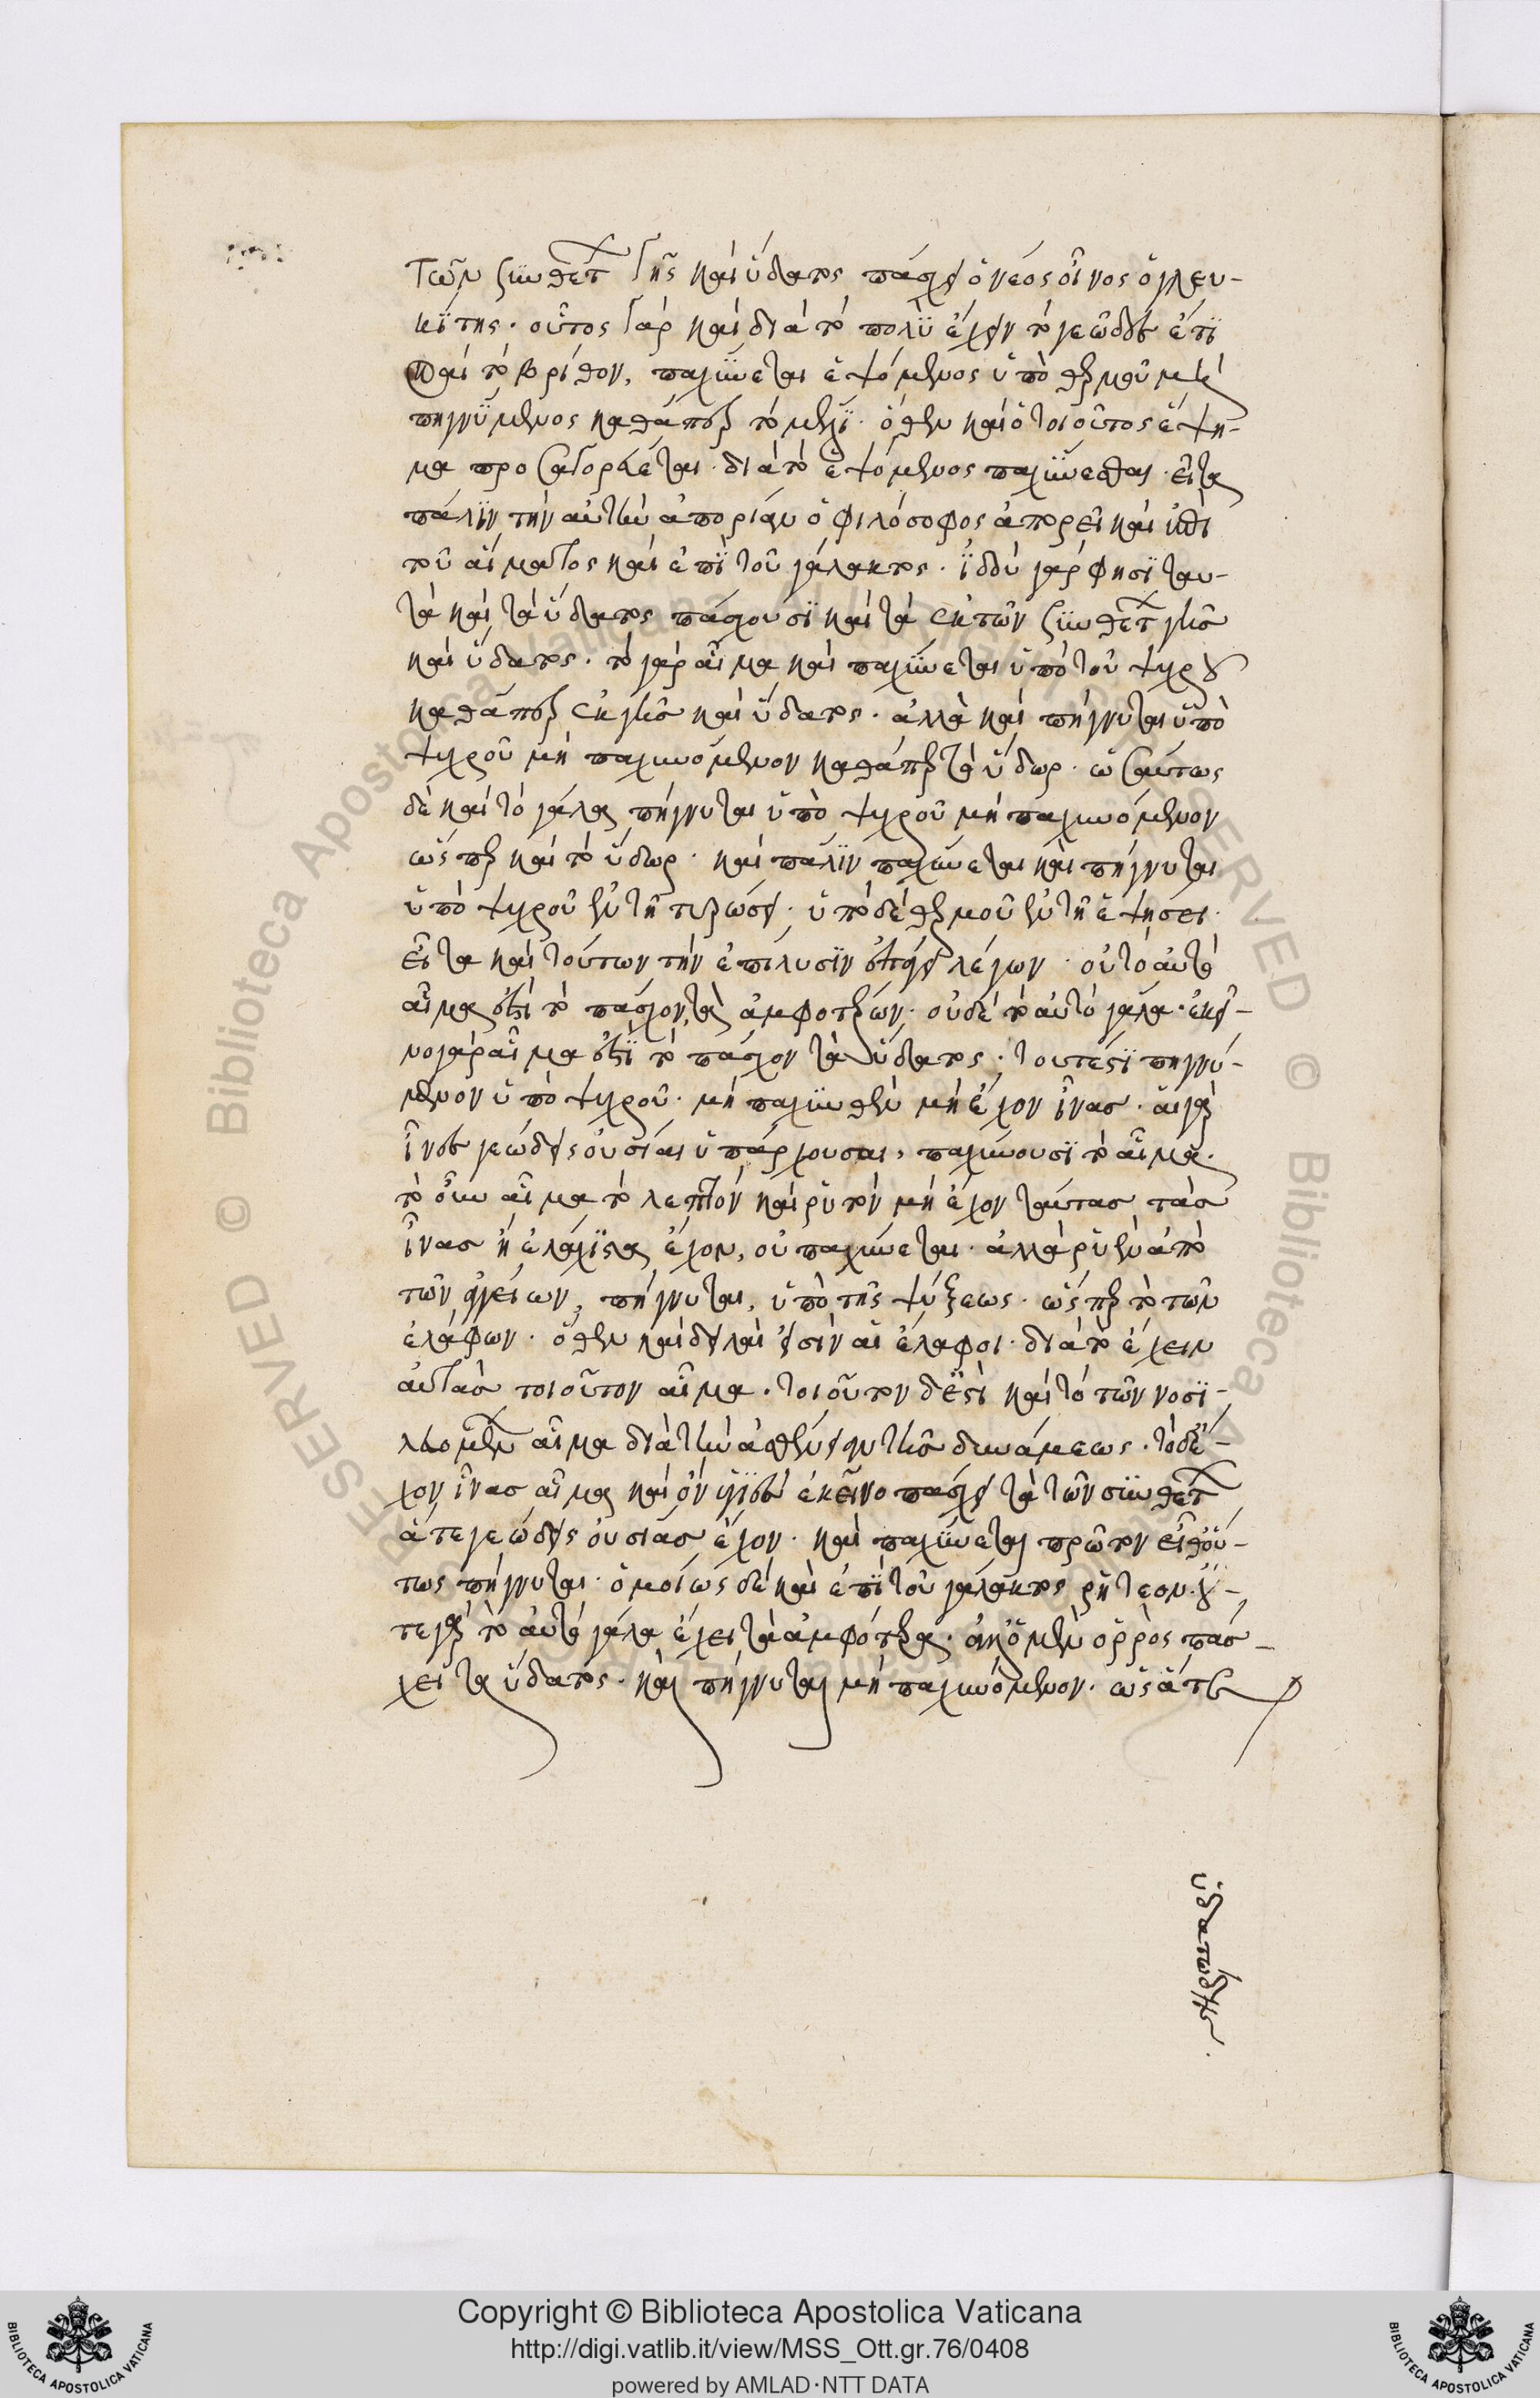 τῶν ζυνθέτ γῆς καὶ ὕδατος πάσχει ὁ νέος οἶνος ὁ γλευ-
κίτης· οὗτος γὰρ καὶ διὰ τὸ πολὺ ἔχειν τὸ γεῶδες ἔτι
καὶ τὸ βρίθον, παχύνεται ἑψόμενος ὑπὸ θερμοῦ μὴ
πηγνύμενος καθάπερ τὸ μέλι· ὅθεν καὶ ὁ τοιοῦτος ἕψη-
μα προσαγορεύεται· διὰ τὸ ἑψόμενος παχύνεσθαι· εἶτα
πάλιν τὴν αὐτὴν ἀπορίαν ὁ φιλόσοφος ἀπορεῖ καὶ ἐπὶ
τοῦ αἵματος καὶ ἐπὶ τοῦ γάλακτος· ἰδοὺ γάρ φησι ταυ-
τὰ καὶ τὰ ὕδατος πάσχουσι καὶ τὰ ἐκ τῶν ζυνθέτ γῆς
καὶ ὕδατος· τὸ γὰρ αἷμα καὶ παχύνεται ὑπὸ τοῦ ψυχροῦ
καθάπερ ἐκ γῆς καὶ ὕδατος· ἀλλὰ καὶ πήγνυται ὑπὸ
ψυχροῦ μὴ παχυνόμενον καθάπερ τὸ ὕδωρ· ὡσαύτως
δὲ καὶ τὸ γάλα πήγνυται ὑπὸ ψυχροῦ μὴ παχυνόμενον
ὥσπερ καὶ τὸ ὕδωρ· καὶ πάλιν παχύνεται καὶ πήγνυται
ὑπὸ ψυχροῦ ἐν τῇ τυρώσει· ὑπὸ δὲ θερμοῦ ἐν τῇ ἑψήσει·
εἶτα καὶ τούτων τὴν ἐπίλυσιν ἐπάγει λέγων· οὐ τὸ αὐτὸ
αἷμα ἐστὶ τὸ πάσχον τὰ ἀμφοτέρων· οὐδὲ τὸ αὐτὸ γάλα· ἐκεῖ-
νο γὰρ αἷμα ἐστὶ τὸ πάσχον τὰ ὕδατος· τουτέστι πηγνύ-
μενον ὑπὸ ψυχροῦ· μὴ παχυνθὲν μὴ ἔχον ἶνας· αἱ γὰρ
ἶνες γεώδεις οὐσίαι ὑπάρχουσαι, παχύνουσι τὸ αἷμα·
τὸ οὖν αἷμα τὸ λεπτὸν καὶ ῥυτὸν μὴ ἔχον ταύτας τὰς
ἶνας ἢ ἐλάχιστα ἔχον, οὐ παχύνεται· ἀλλὰ ῥυὲν ἀπὸ
τῶν ἀγγείων, πήγνυται, ὑπὸ τῆς ψύξεως· ὥσπερ τὸ τῶν
ἐλάφων· ὅθεν καὶ δειλαί εἰσιν αἱ ἔλαφοι· διὰ τὸ ἔχειν
αὐτὰς τοιοῦτον αἷμα· τοιοῦτον δέ ἐστι καὶ τὸ τῶν νοσι-
λευομένων αἷμα διὰ τὴν ἀσθένειαν τῆς δυνάμεως· τὸ δὲ ἔ-
χον ἶνας αἷμα καὶ ὂν ὑγιὲς ἐκεῖνο πάσχει τὰ τῶν συνθέτ
ἅτε γεώδεις οὐσίας ἔχον· καὶ παχύνεται πρῶτον εἶθ' οὕ-
τως πήγνυται· ὁμοίως δὲ καὶ ἐπὶ τοῦ γάλακτος ῥητέον· οὔ-
τε γὰρ τὸ αὐτὸ γάλα ἔχει τὰ ἀμφότερα· ἀλλ' ὁ μὲν ὀρρὸς πάσ-
χει τὰ ὕδατος· καὶ πήγνυται μὴ παχυνόμενον· ὡς ἅτε
ὑδατώδης·
Copyright © Biblioteca Apostolica Vaticana
http://digi.vatlib.it/view/MSS_Ott.gr.76/0408
powered by AMLAD·NTT DATA